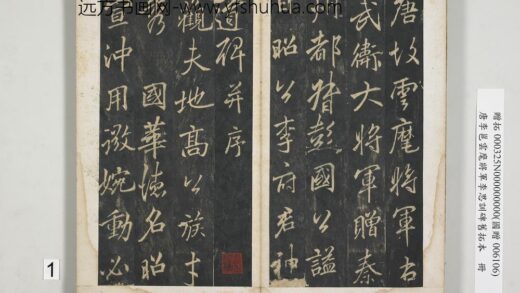 远方书画网-www.yfshuhua.com
唐故雲麾將軍右
武衛大將軍贈秦
州都督彭國公謚
曰昭公李府君神
道碑并序
觀夫地高公族才
秀國華德名昭
宣沖用微婉動必
贈拓 000325N000000000(國贈 006106)
唐李邕雲麾將軍李思訓碑舊拓本 冊
1